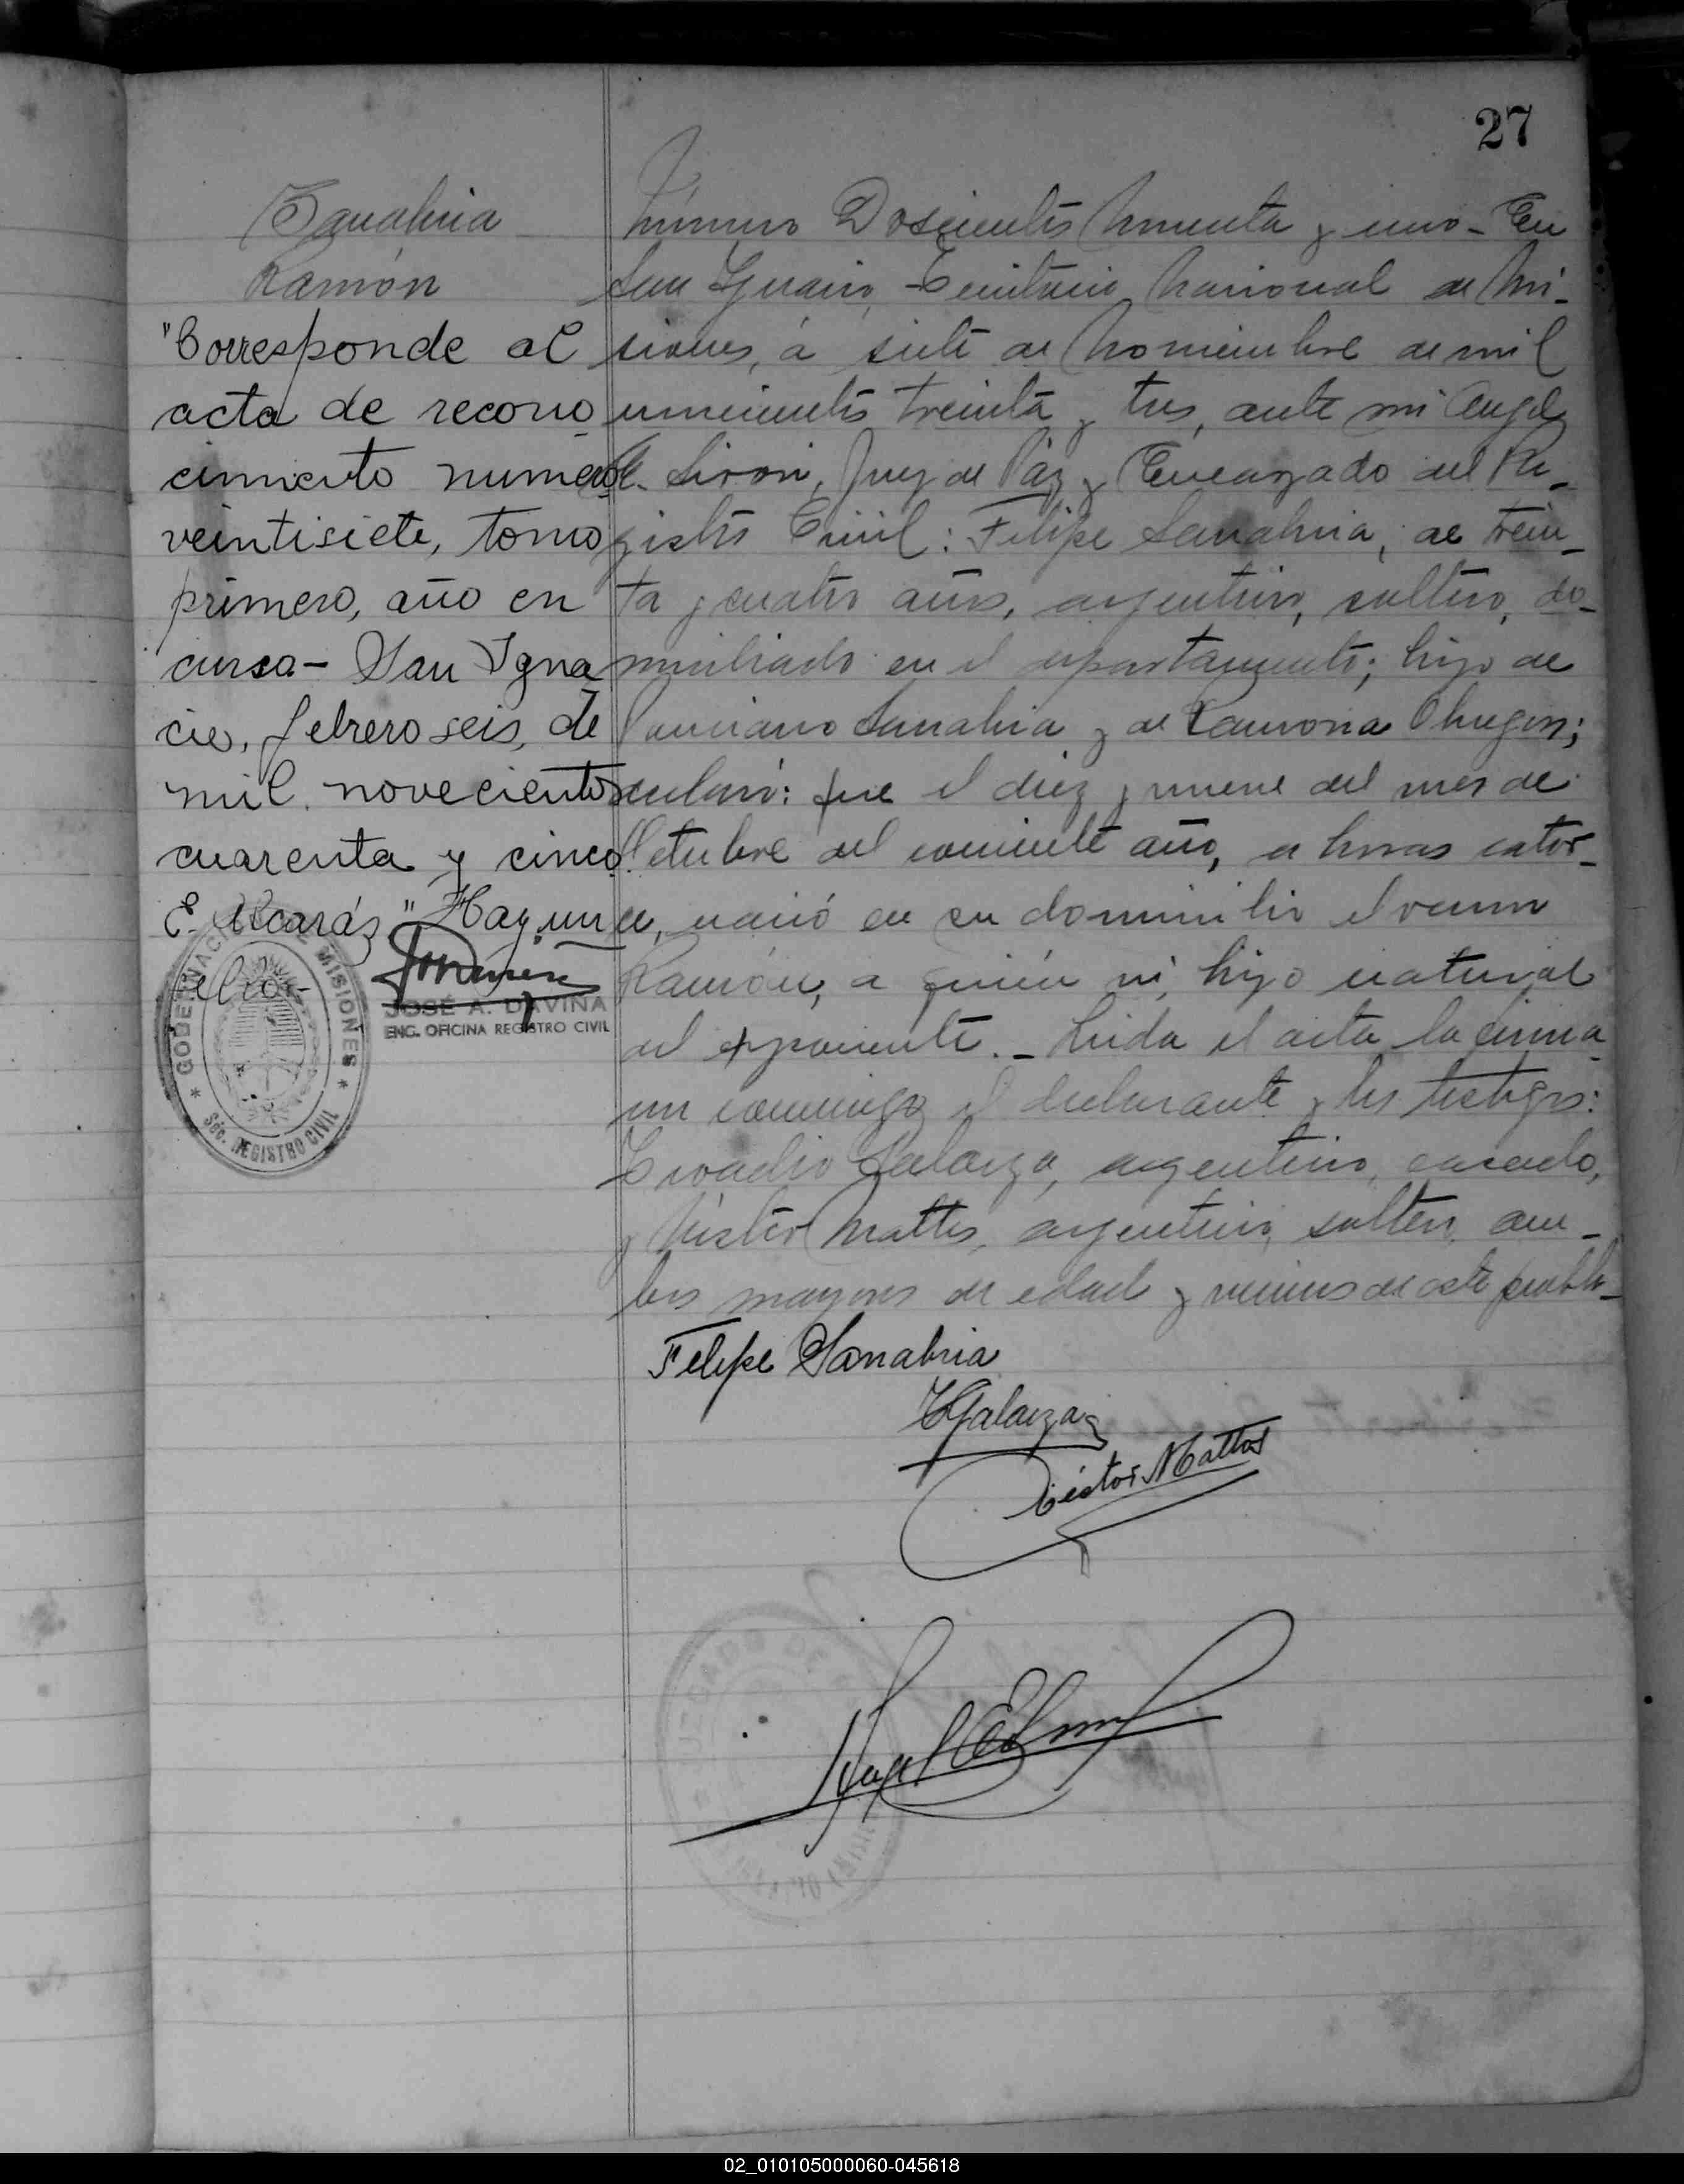 27
Sanabria
Ramón
"Corresponde al
acta de recono
cimiento numero
veintisiete, tomo
primero, año en
curso - San Igna
cio, febrero seis, de
mil novecientos
cuarenta y cinco
E. Alcaráz" Hay un
sello -
JOSÉ A. DAVIÑA
ENC. OFICINA REGISTRO CIVIL
GOBERNACIÓN DE MISIONES
SEC. REGISTRO CIVIL
Número Doscientos Noventa y uno - En
San Ignacio, Territorio Nacional de Mi-
siones, á siete de Noviembre de mil
novecientos treinta y tres, ante mi Angel
E. Juez de Paz y Encargado del Re-
gistro Civil: Felipe Sanabria, de trein-
ta y cuatro años, argentino, soltero, do-
miciliado en el departamento; hijo de
Ponciano Sanabria y de Ramona
declaró: que el diez y nueve del mes de
Octubre del corriente año, a horas cator-
ce, nació en su domicilio el varon
Ramón, a quién ví, hijo natural
del exponente. - Leida el acta la firma
ron conmigo el declarante y los testigos:
Galarza, argentino, casado,
y Víctor Mattos, argentino, soltero, am-
bos mayores de edad y vecinos de este pueblo -
Felipe Sanabria
Galarza
Víctor Mattos
JUZGADO DE
02_010105000060-045618